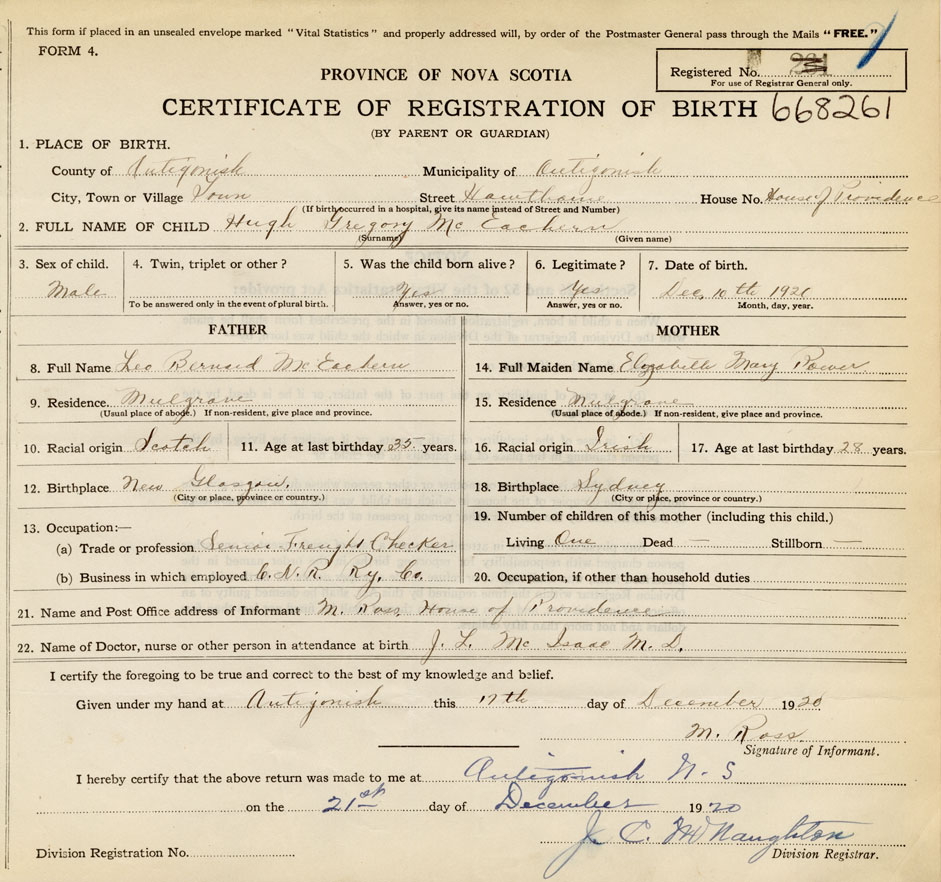 This form if placed in an unsealed envelope marked "Vital Statistics" and properly addressed will, by order of the Postmaster General pass through the Mails "FREE."
FORM 4.
Registered No.
For use of Registrar General only.
PROVINCE OF NOVA SCOTIA
CERTIFICATE OF REGISTRATION OF BIRTH 668261
(BY PARENT OR GUARDIAN)
1. PLACE OF BIRTH.
County of Antigonish Municipality of Antigonish
City, Town or Village Town Street Hawthorne House No. House of Providence
(If birth occurred in a hospital, give its name instead of Street and Number)
2. FULL NAME OF CHILD Hugh Gregory Mc Eachern
(Surname) (Given name)
3. Sex of child. 4. Twin, triplet or other? 5. Was the child born alive? 6. Legitimate? 7. Date of birth.
Male Yes Yes Dec. 10th 192
To be answered only in the event of plural birth. Answer, yes or no. Answer, yes or no. Month, day, year.
FATHER MOTHER
8. Full Name Leo Bernard McEachern 14. Full Maiden Name Elizabeth Mary Power
9. Residence. Mulgrave 15. Residence Mulgrave
(Usual place of abode.) If non-resident, give place and province. (Usual place of abode.) If non-resident, give place and province.
10. Racial origin Scotch 11. Age at last birthday 35 years. 16. Racial origin Irish 17. Age at last birthday 28 years.
12. Birthplace New Glasgow. 18. Birthplace Sydney
(City or place, province or country.) (City or place, province or country.)
19. Number of children of this mother (including this child.)
13. Occupation:—
(a) Trade or profession Senior Freight Checker Living One Dead — Stillborn —
(b) Business in which employed C.N.R. Ry. Co. 20. Occupation, if other than household duties
21. Name and Post Office address of Informant M. Ross House of Providence
22. Name of Doctor, nurse or other person in attendance at birth J. L. Mc Isaac M.D.
I certify the foregoing to be true and correct to the best of my knowledge and belief.
Given under my hand at Antigonish this 17th day of December 1920
M. Ross
Signature of Informant.
I hereby certify that the above return was made to me at Antigonish N.S
on the 21st day of December 1920
J. C. McNaughton
Division Registration No. Division Registrar.